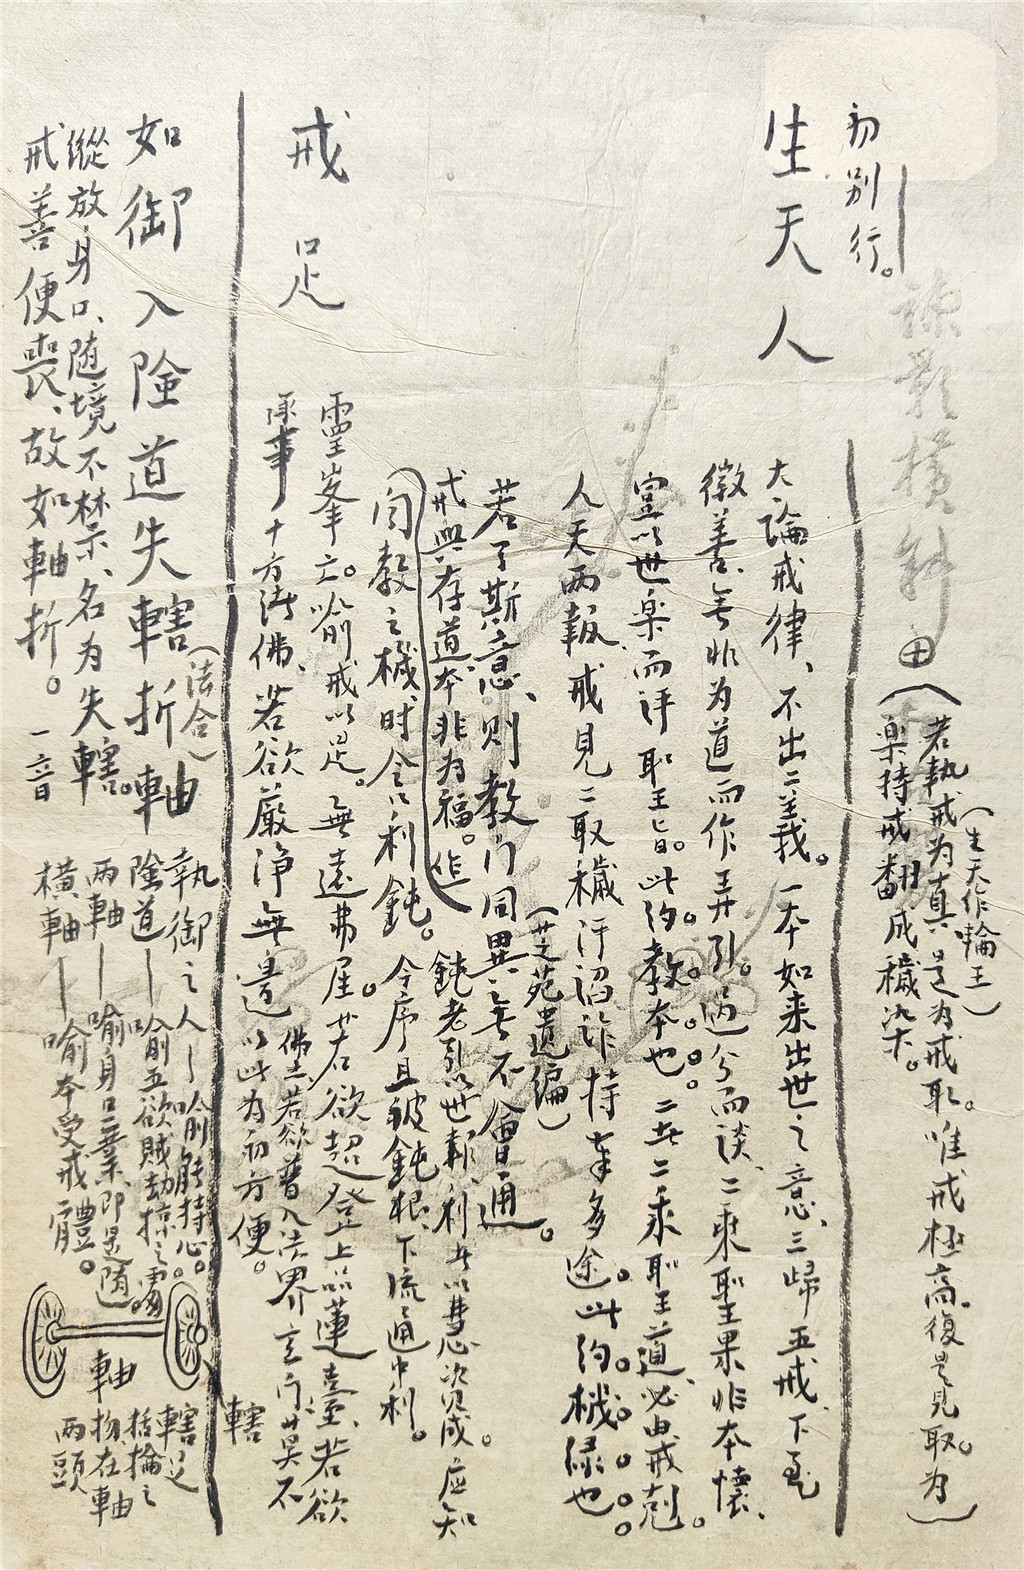 初別行。
(若執戒為真。是為戒取。唯戒極高。復是見取。為)
(生天作輪王)
樂持戒翻成穢染。
生天人
大論戒律、不出二義。一本如来出世之意、三歸五戒、下至
微善、無非为道而作弄引。過分而談、二乘聖果非本懷、
豈以世楽而評聖旨。此約教本也。二者二乘聖道、必由戒剋。
人天兩報、戒見二取穢汙諂詐持事多途。此約機緣也
(芝苑遺編)
若了斯意、則教门同異、無不會通。
戒興存道、本非为福。作
鈍者引以世報、利者以慧心資成。应知
自教之機、时含利鈍。今序且被鈍根、下流通中利。
戒足
靈峯云。喻戒以足。無遠弗届。若欲超登上品蓮臺、若欲
承事十方諸佛、若欲嚴净無邊
佛土、若欲普入法界玄门、莫不
以此为初方便。
如御入險道失轄折軸
(法合)
縱放身口、随境不禁、名为失轄。
戒善便喪、故如軸折。一音
執御之人—喻能持心。
險道—喻五欲賊劫掠之處。
兩軸—喻身口業、即是随。
横軸—喻本受戒體。
轄
軸
轄是
括輪之
物、在軸
兩頭